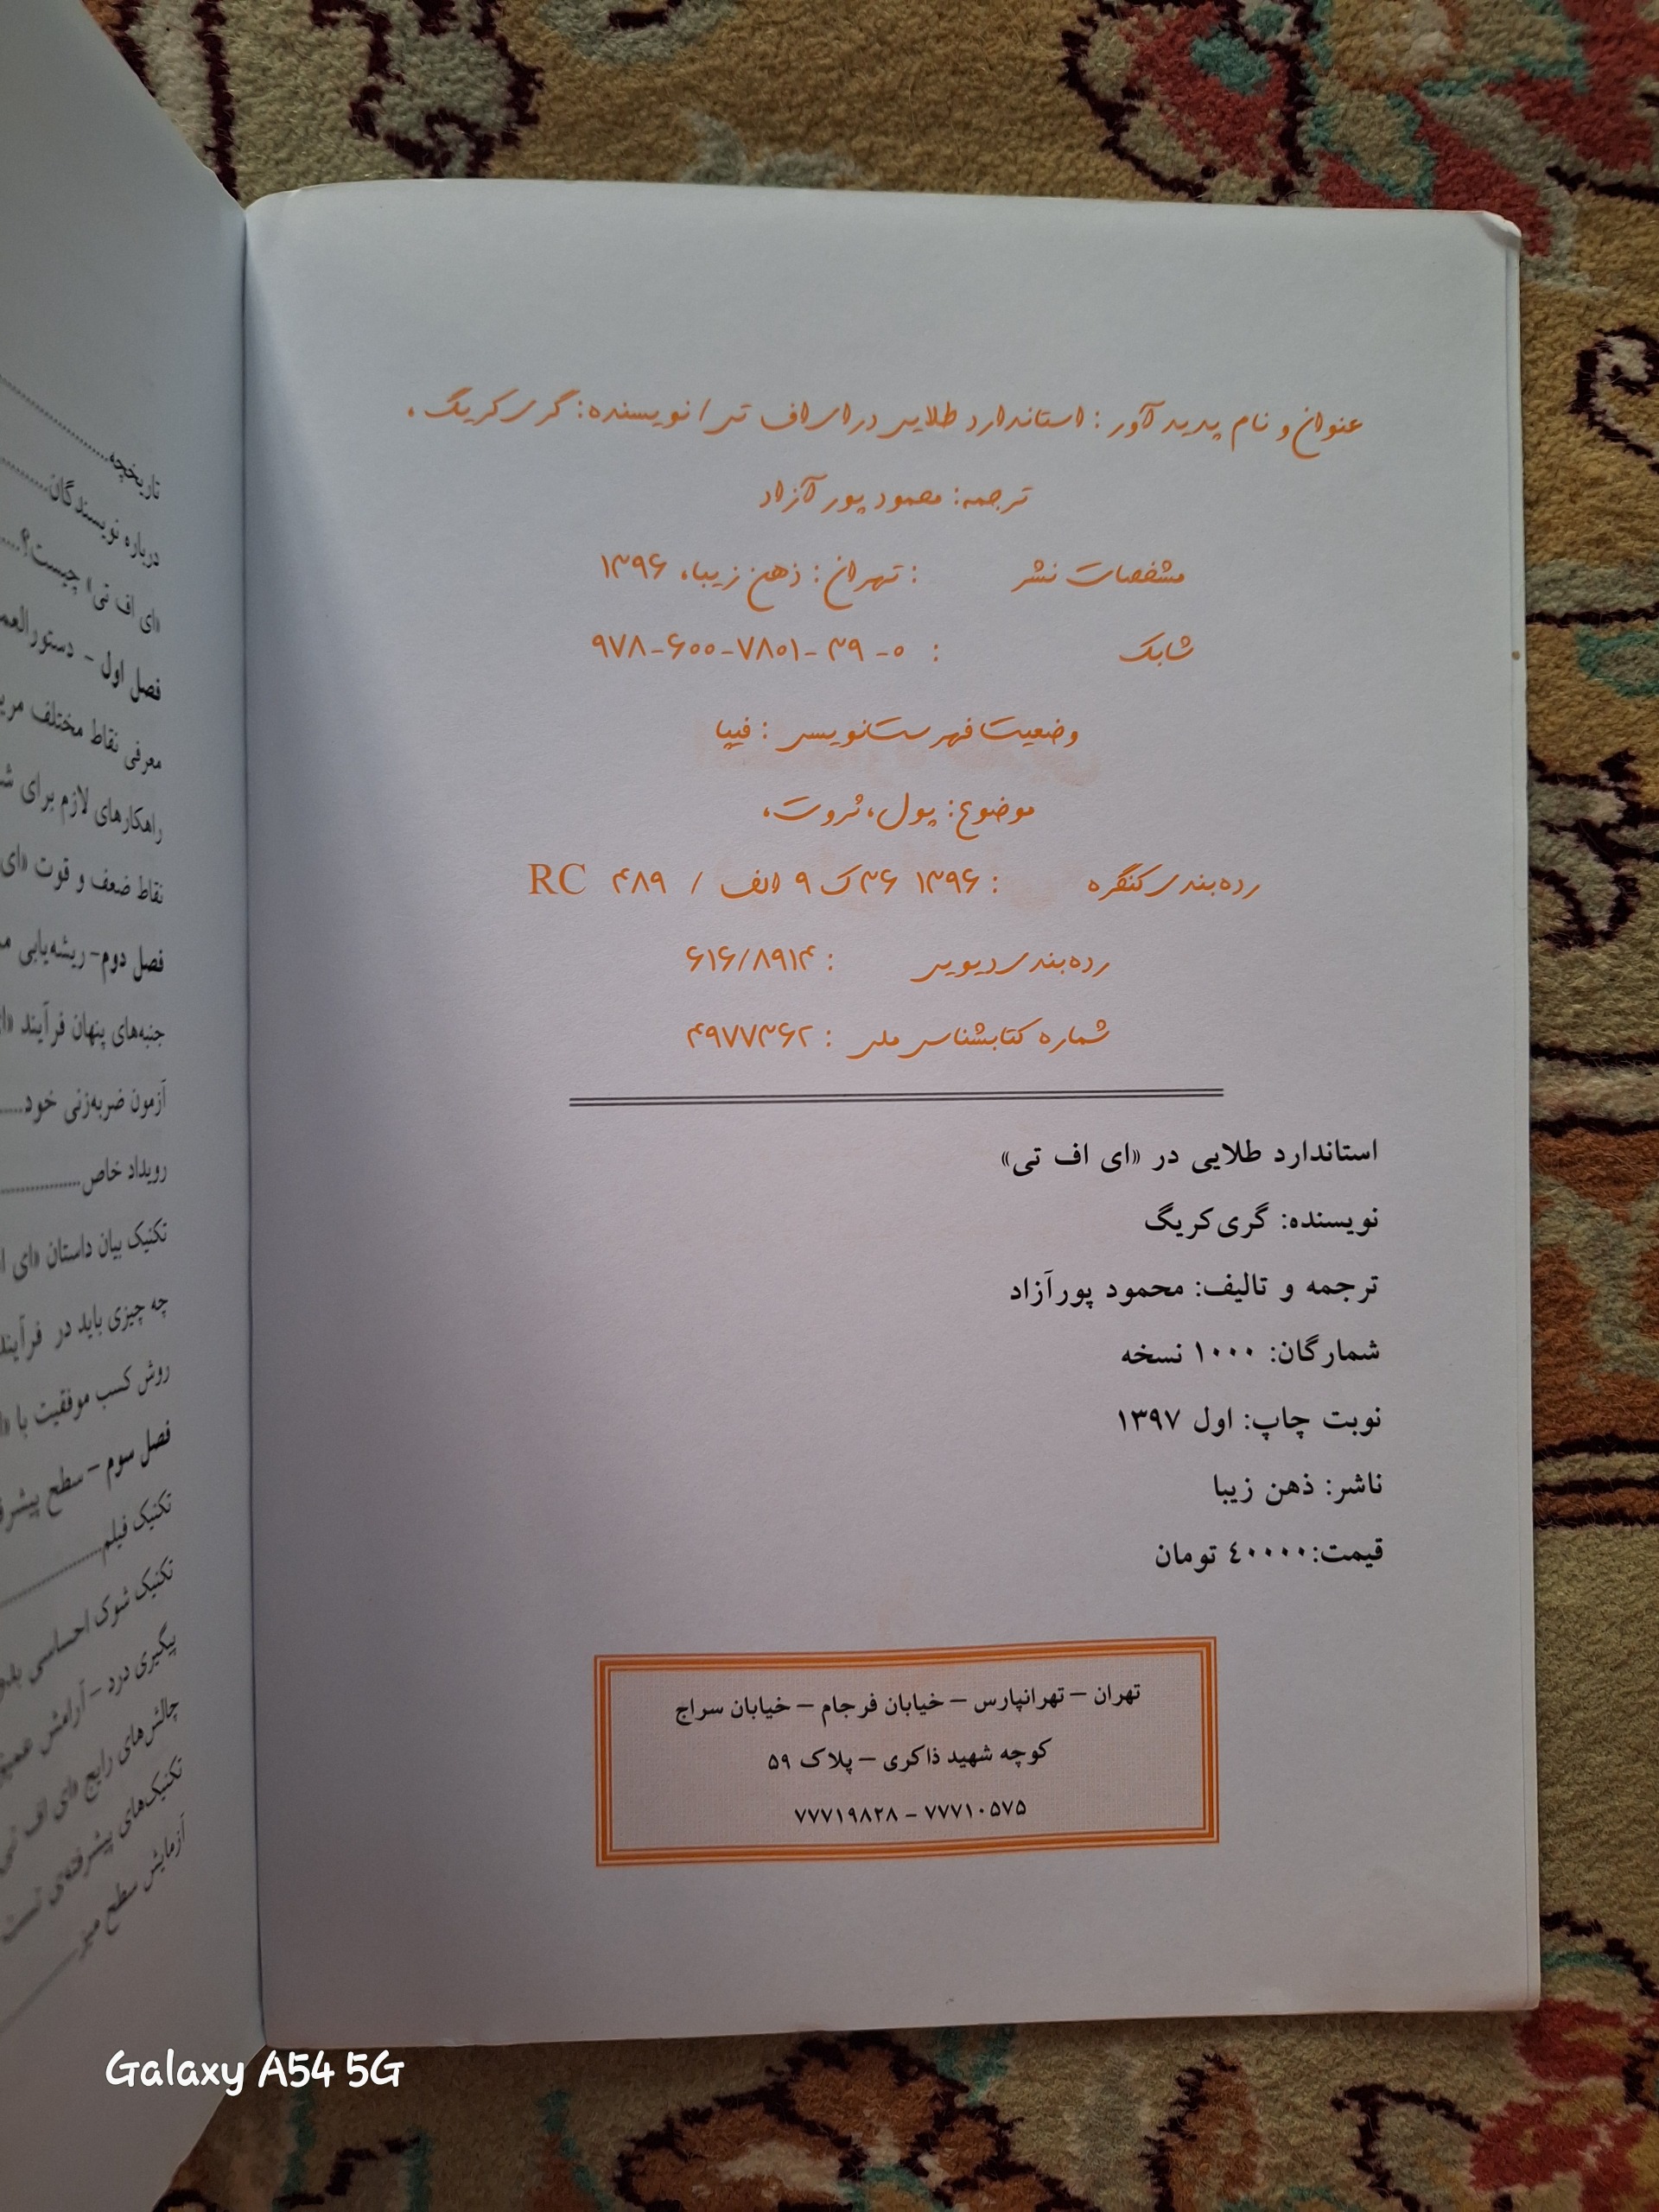 عنوان و نام پدیدآور : استاندارد طلایی در ای اف تی / نویسنده: گری کریگ ،
ترجمه: محمود پور آزاد
مشخصات نشر : تهران: ذهن زیبا، ۱۳۹۶
شابک : ۹۷۸-۶۰۰-۷۸۰۱-۳۹-۰
وضعیت فهرست‌نویسی : فیپا
موضوع: پول، ثروت،
رده‌بندی کنگره : ۱۳۹۶ ۳۶ک ۹ الف / ۴۸۹ RC
رده‌بندی دیویی : ۶۱۶/۸۹۱۴
شماره کتابشناسی ملی : ۴۹۷۷۳۶۲
استاندارد طلایی در «ای اف تی»
نویسنده: گری‌کریگ
ترجمه و تالیف: محمود پورآزاد
شمارگان: ۱۰۰۰ نسخه
نوبت چاپ: اول ۱۳۹۷
ناشر: ذهن زیبا
قیمت:۴۰۰۰۰ تومان
تهران – تهرانپارس – خیابان فرجام – خیابان سراج
کوچه شهید ذاکری – پلاک ۵۹
۷۷۷۱۰۵۷۵ – ۷۷۷۱۹۸۲۸
تاریخچه
درباره نویسندگان
«ای اف تی» چیست؟
فصل اول – دستور
معرفی نقاط مختلف
راهکارهای لازم برای
نقاط ضعف و قوت «ای
فصل دوم- ریشه‌یابی
جنبه‌های پنهان فرآیند
آزمون ضربه‌زنی خود
رویداد خاص
تکنیک بیان داستان «ای
چه چیزی باید در فرآیند
روش کسب موفقیت با
فصل سوم – سطح
تکنیک فیلم
تکنیک شوک احساسی
پیگیری درد – آرامش
چالش‌های رایج «ای اف تی
تکنیک‌های پیشرفته‌ی
آزمایش سطح میز
Galaxy A54 5G